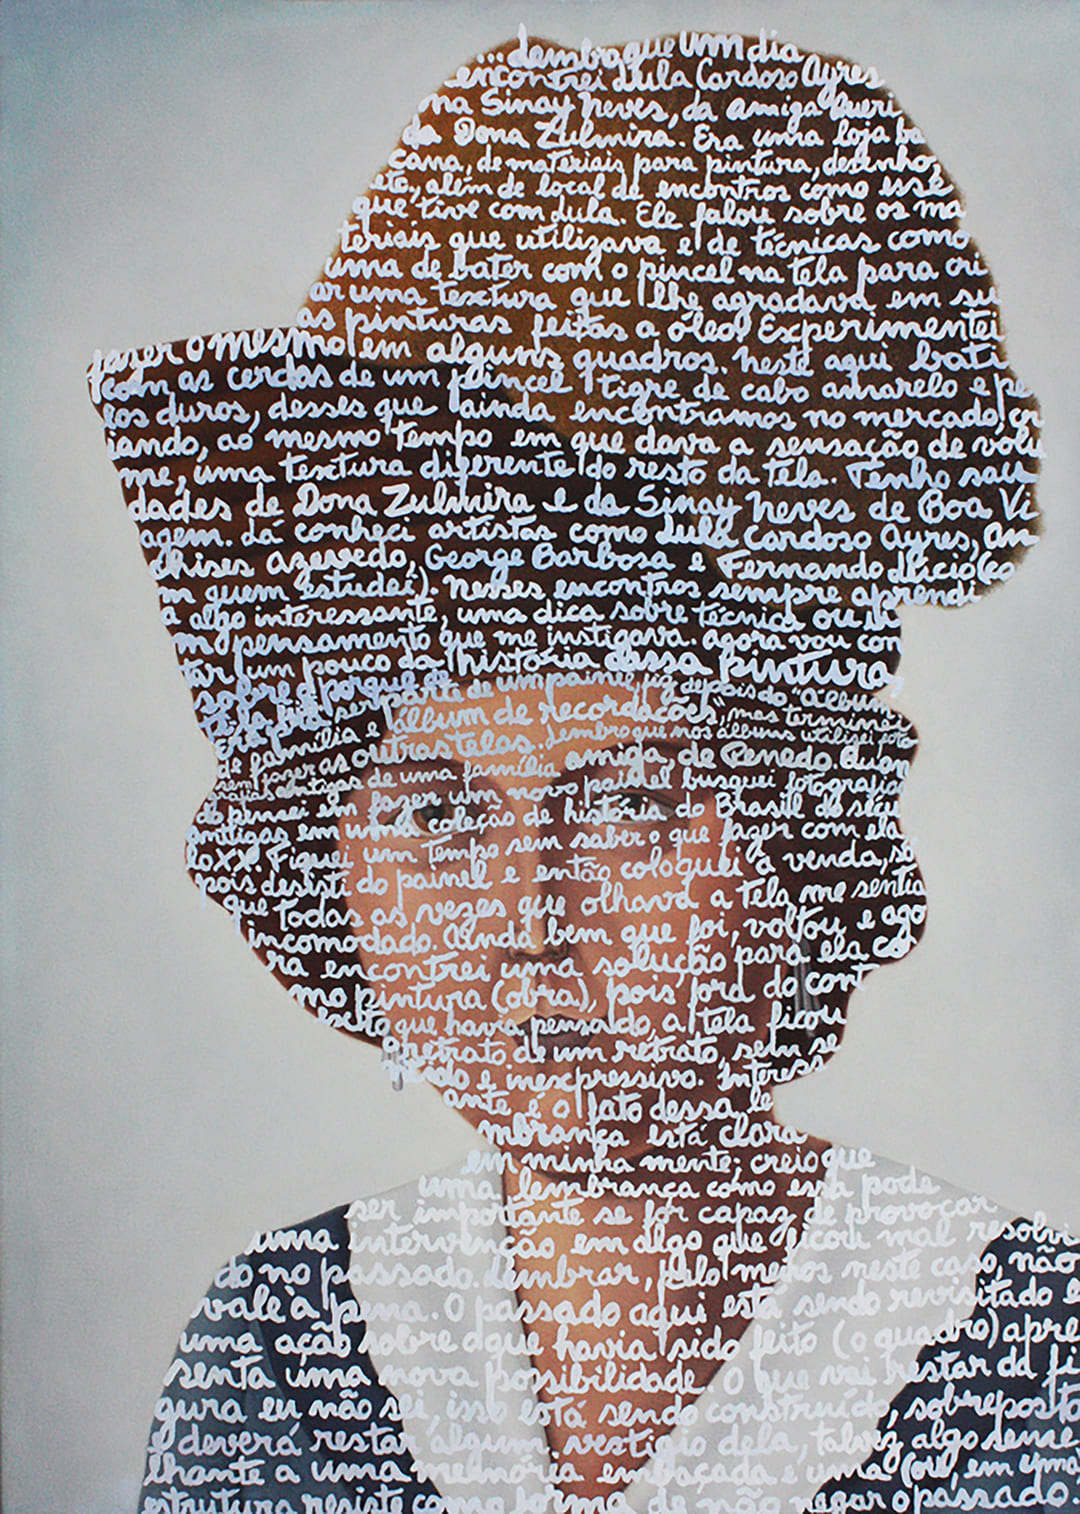 ...Lembro que um dia
encontrei Lula Cardoso Ayres
na Sinay Neves, da amiga queri
da Dona Zulmira. Era uma loja ba
cana, de materiais para pintura, desenho,
etc, além de local de encontros como esse
que tive com Lula. Ele falou sobre os ma
teriais que utilizava e de técnicas como
uma de bater com o pincel na tela para cri
ar uma textura que lhe agradava em su
as pinturas feitas a óleo. Experimentei
fazer o mesmo em alguns quadros. Neste aqui bati
com as cerdas de um pincel tigre de cabo amarelo e pe
los duros, desses que ainda encontramos no mercado, cr
iando, ao mesmo tempo em que dava a sensação de volu
me, uma textura diferente do resto da tela. Tenho sau
dades de Dona Zulmira e da Sinay Neves de Boa Vi
agem. Lá conheci artistas como Lula Cardoso Ayres, An
chises Azevedo, George Barbosa e Fernando Lúcio (co
m quem estudei). Nesses encontros sempre aprendi
a algo interessante, uma dica sobre técnica ou u
m pensamento que me instigava. Agora vou con
tar um pouco da história dessa pintura,
sobre o porque de
ser parte de um painel, fiz depois do "álbum
de família e álbum de recordações", mas terminei
sem fazer as outras telas. Lembro que nos álbuns utilizei foto
grafias antigas de uma família amiga, de Penedo. Quan
do pensei em fazer um novo painel busquei fotografias
antigas em uma coleção de história do Brasil do sécu
lo XX. Fiquei um tempo sem saber o que fazer com ela
pois desisti do painel e então coloquei à venda, só
que todas as vezes que olhava a tela me sentia
incomodado. Ainda bem que foi, voltou e ago
ra encontrei uma solução para ela co
mo pintura (obra), pois fora do cont
exto que havia pensado, a tela ficou
o retrato de um retrato, sem se
ntido e inexpressivo. Interess
ante é o fato dessa le
mbrança está clara
em minha mente; creio que
uma lembrança como essa pode
ser importante se for capaz de provocar
uma intervenção em algo que ficou mal resolvi
do no passado. Lembrar, pelo menos neste caso, não
vale à pena. O passado aqui está sendo revisitado e
uma ação sobre o que havia sido feito (o quadro) apre
senta uma nova possibilidade. O que vai restar da fi
gura eu não sei, isso está sendo construído, sobreposto
e deverá restar algum vestígio dela, talvez algo seme
lhante a uma memória embaçada e uma cor, em uma
estrutura resiste como forma de não negar o passado.